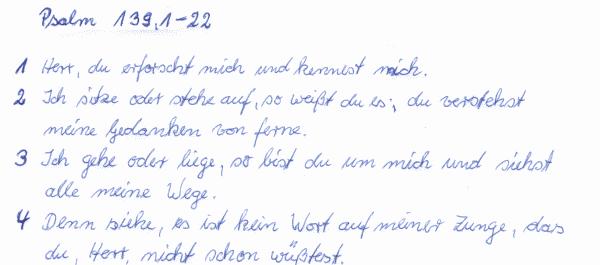 Psalm 139,1-22
1 Herr, du erforscht mich und kennest mich.
2 Ich sitze oder stehe auf, so weißt du es; du verstehst
meine Gedanken von ferne.
3 Ich gehe oder liege, so bist du um mich und siehst
alle meine Wege.
4 Denn siehe, es ist kein Wort auf meiner Zunge, das
du, Herr, nicht schon wüßtest.